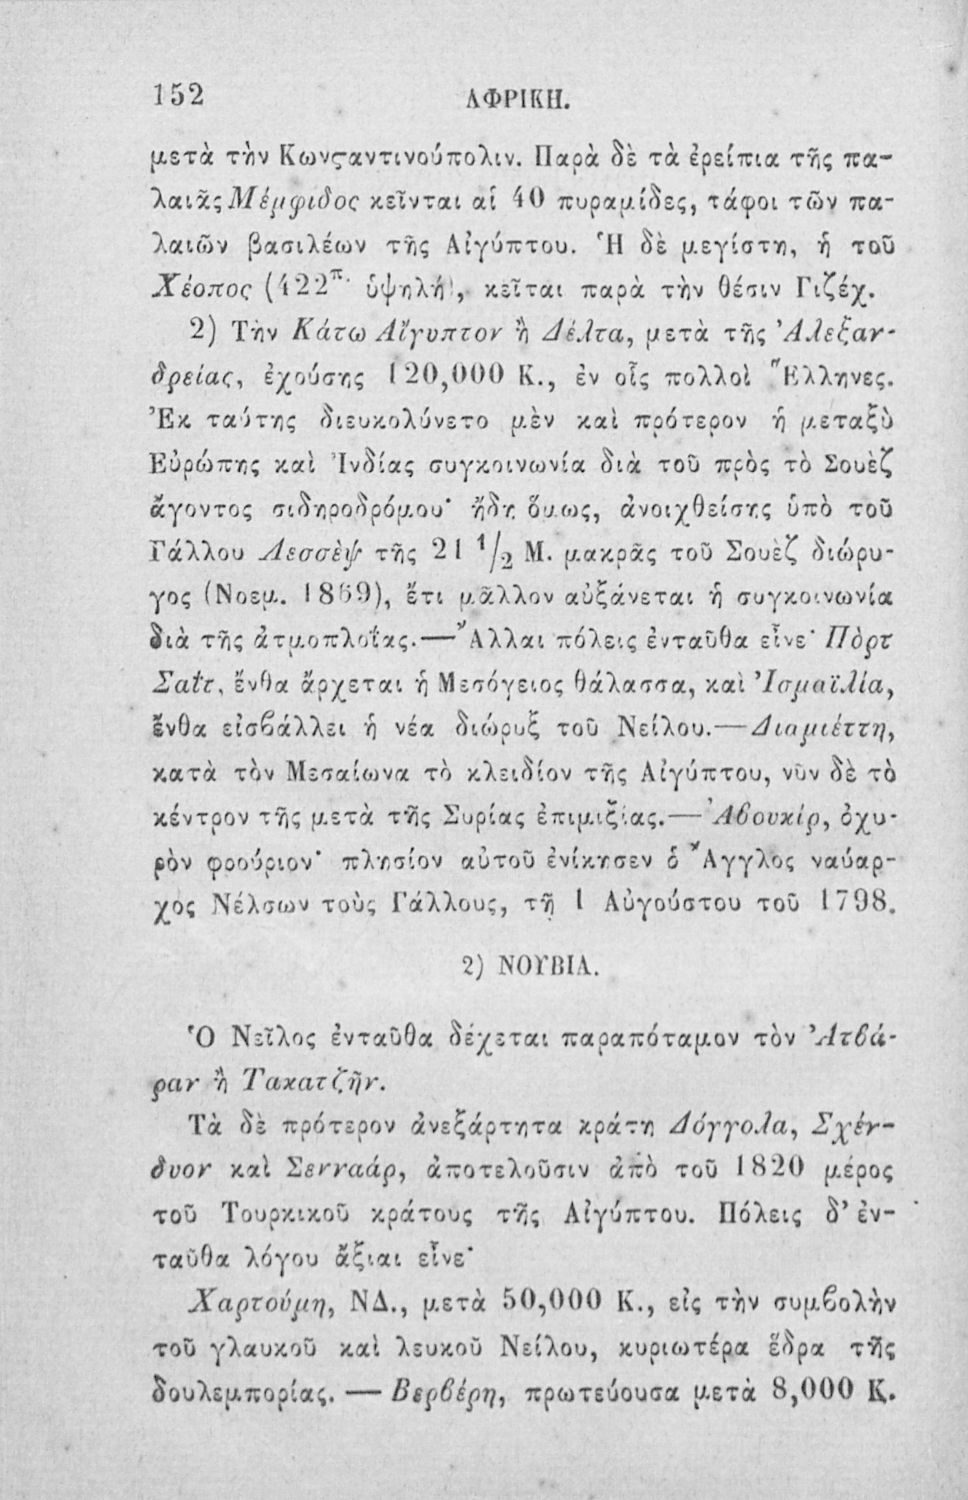 152 ΑΦΡΙΚΗ.
μετὰ τὴν Κωνϛαντινούπολιν. Παρὰ δὲ τὰ ἐρείπια τῆς πα-
λαιᾶς Μέμφιδος κεῖνται αἱ 40 πυραμίδες, τάφοι τῶν πα-
λαιῶν βασιλέων τῆς Αἰγύπτου. Ἡ δὲ μεγίστη, ἡ τοῦ
Χέοπος (422π. ὑψηλή), κεῖται παρὰ τὴν θέσιν Γιζέχ.
2) Τὴν Κάτω Αἴγυπτον ἢ Δέλτα, μετὰ τῆς Ἀλεξαν-
δρείας, ἐχούσης 120,000 Κ., ἐν οἷς πολλοὶ Ἕλληνες.
Ἐκ ταύτης διευκολύνετο μὲν καὶ πρότερον ἡ μεταξὺ
Εὐρώπης καὶ Ἰνδίας συγκοινωνία διὰ τοῦ πρὸς τὸ Σουὲζ
ἄγοντος σιδηροδρόμου· ἤδη ὅμως, ἀνοιχθείσης ὑπὸ τοῦ
Γάλλου Λεσσὲψ τῆς 21 1/2 Μ. μακρᾶς τοῦ Σουὲζ διώρυ-
γος (Νοεμ. 1869), ἔτι μᾶλλον αὐξάνεται ἡ συγκοινωνία
διὰ τῆς ἀτμοπλοΐας.—Ἄλλαι πόλεις ἐνταῦθα εἶνε· Πὸρτ
Σαΐτ, ἔνθα ἄρχεται ἡ Μεσόγειος θάλασσα, καὶ Ἰσμαϊλία,
ἔνθα εἰσβάλλει ἡ νέα διώρυξ τοῦ Νείλου.—Διαμιέττη,
κατὰ τὸν Μεσαίωνα τὸ κλειδίον τῆς Αἰγύπτου, νῦν δὲ τὸ
κέντρον τῆς μετὰ τῆς Συρίας ἐπιμιξίας.—Ἀβουκίρ, ὀχυ-
ρὸν φρούριον· πλησίον αὐτοῦ ἐνίκησεν ὁ Ἄγγλος ναύαρ-
χος Νέλσων τοὺς Γάλλους, τῇ 1 Αὐγούστου τοῦ 1798.
2) ΝΟΥΒΙΑ.
Ὁ Νεῖλος ἐνταῦθα δέχεται παραπόταμον τὸν Ἀτβά-
ραν ἢ Τακατζῆν.
Τὰ δὲ πρότερον ἀνεξάρτητα κράτη Δόγγολα, Σχέν-
δυον καὶ Σενναάρ, ἀποτελοῦσιν ἀπὸ τοῦ 1820 μέρος
τοῦ Τουρκικοῦ κράτους τῆς Αἰγύπτου. Πόλεις δ' ἐν-
ταῦθα λόγου ἄξιαι εἶνε·
Χαρτούμη, ΝΔ., μετὰ 50,000 Κ., εἰς τὴν συμβολὴν
τοῦ γλαυκοῦ καὶ λευκοῦ Νείλου, κυριωτέρα ἕδρα τῆς
δουλεμπορίας. — Βερβέρη, πρωτεύουσα μετὰ 8,000 Κ.